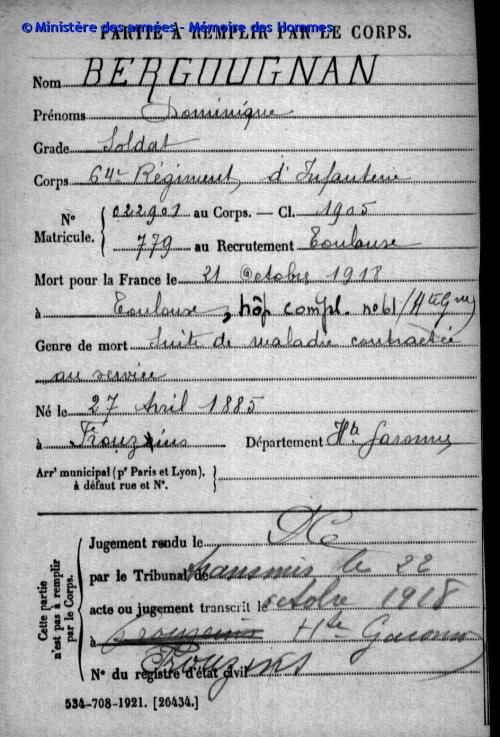 © Ministère des armées - Mémoire des Hommes
PARTIE À REMPLIR PAR LE CORPS.
Nom BERGOUGNAN
Prénoms Dominique
Grade Soldat
Corps 64e Régiment d'Infanterie
N° Matricule. { 022901 au Corps. — Cl. 1905
779 au Recrutement Toulouse
Mort pour la France le 21 Octobre 1918
à Toulouse, hôp compl. no 61 / Hte Gne
Genre de mort Suite de maladie contractée
au service
Né le 27 Avril 1885
à Frouzins Département Hte Garonne
Arrt municipal (pr Paris et Lyon),
à défaut rue et N°.
Cette partie n'est pas à remplir par le Corps.
Jugement rendu le
par le Tribunal de transmis le 22
acte ou jugement transcrit le octobre 1918
à Frouzins Hte Garonne
Frouzins
N° du registre d'état civil
534-708-1921. [26434.]